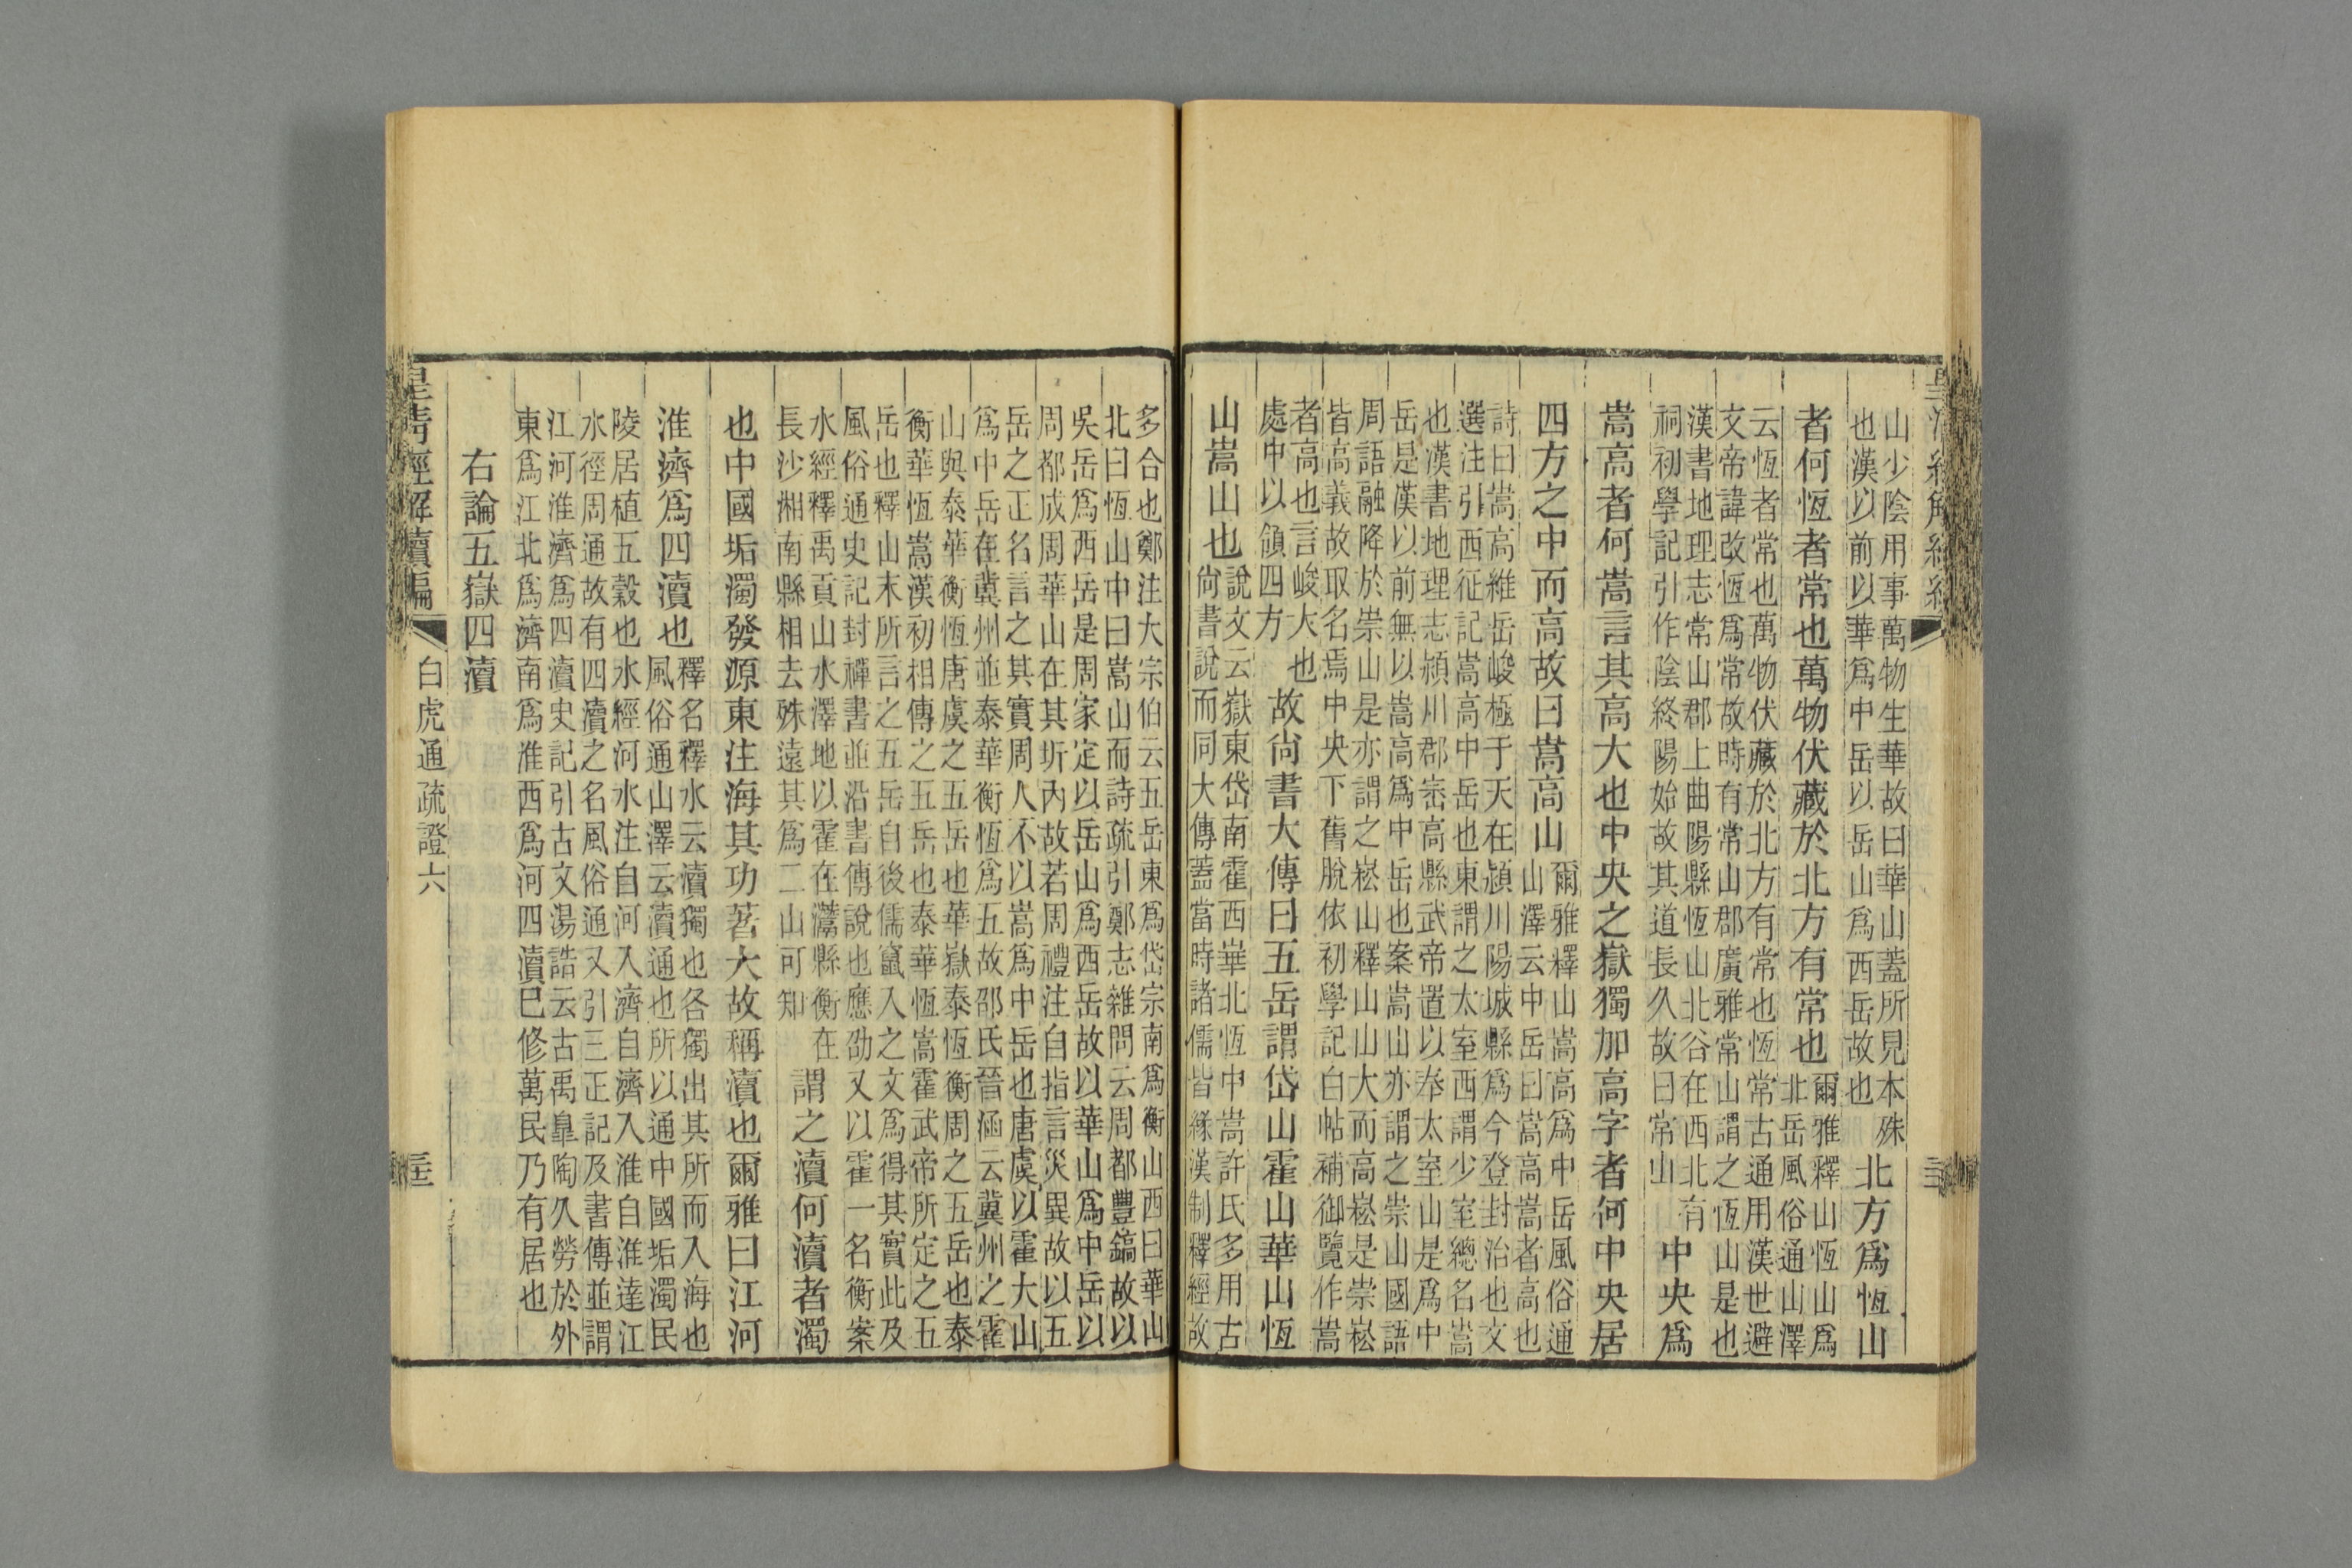 山少陰用事萬物生華故曰華山蓋所見本殊
也漢以前以華爲中岳以岳山爲西岳故也
北方爲恆山
者何恆者常也萬物伏藏於北方有常也
爾雅釋山恆山爲
北岳風俗通山澤
云恆者常也萬物伏藏於北方有常也恆常古通用漢世避
文帝諱改恆爲常故時有常山郡廣雅常山謂之恆山是也
漢書地理志常山郡上曲陽縣恆山北谷在西北有
祠初學記引作陰終陽始故其道長久故曰常山
中央爲
嵩高者何嵩言其高大也中央之嶽獨加高字者何中央居
四方之中而高故曰嵩高山
爾雅釋山嵩高爲中岳風俗通
山澤云中岳曰嵩高嵩者高也
詩曰嵩高維岳峻極于天在潁川陽城縣爲今登封治也文
選注引西征記嵩高中岳也東謂之太室西謂少室總名嵩
也漢書地理志潁川郡崈高縣武帝置以奉太室山是爲中
岳是漢以前無以嵩高爲中岳也案嵩山亦謂之崇山國語
周語融降於崇山是亦謂之崧山釋山山大而高崧是崇崧
皆高義故取名焉中央下舊脫依初學記白帖補御覽作嵩
者高也言峻大也
處中以領四方
故尙書大傳曰五岳謂岱山霍山華山恆
山嵩山也
說文云嶽東岱南霍西崋北恆中嵩許氏多用古
尙書說而同大傳蓋當時諸儒皆緣漢制釋經故
多合也鄭注大宗伯云五岳東爲岱宗南爲衡山西曰華山
北曰恆山中曰嵩山而詩疏引鄭志雜問云周都豐鎬故以
吳岳爲西岳是周家定以岳山爲西岳故以華山爲中岳以
周都成周華山在其圻內故若周禮注自指言災異故以五
岳之正名言之其實周人不以嵩爲中岳也唐虞以霍大山
爲中岳在冀州並泰華衡恆爲五故邵氏晉涵云冀州之霍
山與泰華衡恆唐虞之五岳也華嶽泰恆衡周之五岳也泰
衡華恆嵩漢初相傳之五岳也泰華恆嵩霍武帝所定之五
岳也釋山末所言之五岳自後儒竄入之文爲得其實此及
風俗通史記封禪書並沿書傳說也應劭又以霍一名衡案
水經釋禹貢山水澤地以霍在灊縣衡在
長沙湘南縣相去殊遠其爲二山可知
謂之瀆何瀆者濁
也中國垢濁發源東注海其功著大故稱瀆也爾雅曰江河
淮濟爲四瀆也
釋名釋水云瀆獨也各獨出其所而入海也
風俗通山澤云瀆通也所以通中國垢濁民
陵居植五穀也水經河水注自河入濟自濟入淮自淮達江
水徑周通故有四瀆之名風俗通又引三正記及書傳並謂
江河淮濟爲四瀆史記引古文湯誥云古禹皐陶久勞於外
東爲江北爲濟南爲淮西爲河四瀆已修萬民乃有居也
右論五嶽四瀆
皇淸經解續編
白虎通疏證六